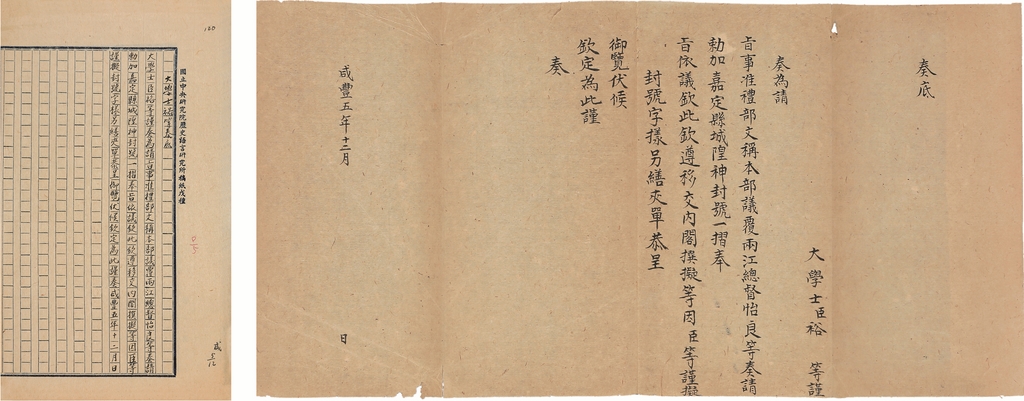 奏底
大學士臣裕 等謹
奏為請
旨事准禮部文稱本部議覆兩江總督怡良等奏請
勅加嘉定縣城隍神封號一摺奉
旨依議欽此欽遵移交內閣撰擬等因臣等謹擬
封號字樣另繕夾單恭呈
御覽伏候
欽定為此謹
奏
咸豐五年十二月 日
120
國立中央研究院歷史語言研究所稿紙戊種
大學士裕等奏底
大學士臣裕等謹奏為請旨事准禮部文稱本部議覆兩江總督怡良等奏請
勅加嘉定縣城隍神封號一摺奉旨依議欽此欽遵移交內閣撰擬等因臣等
謹擬封號字樣另繕夾單恭呈御覽伏候欽定為此謹奏咸豐五年十二月 日